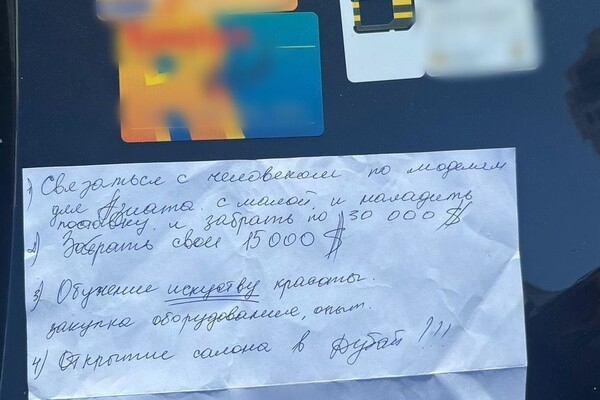 1) Связаться с человеком по моделям
для Азиата с малой и наладить
поставку и забрать по 30 000 $
2) Забрать свои 15 000 $
3) Обучение искуству красаты.
закупка оборудование, опыт.
4) Открытие салона в Дубай !!!